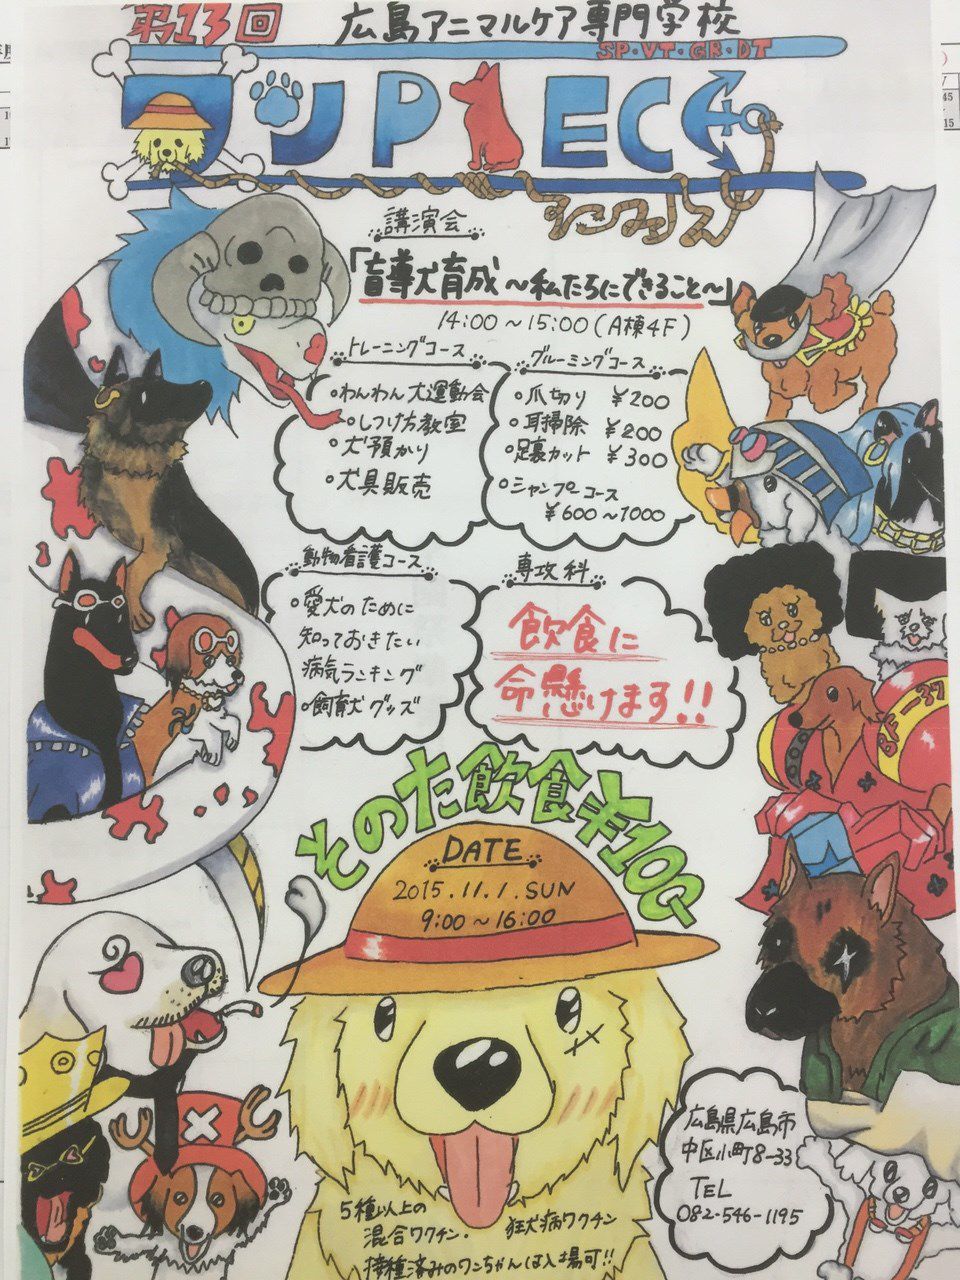 第13回 広島アニマルケア専門学校
SP・VT・GR・DT
ワンPIECE
講演会
「盲導犬育成～私たちにできること～」
14:00～15:00(A棟4F)
トレーニングコース
・わんわん大運動会
・しつけ方教室
・犬預かり
・犬具販売
グルーミングコース
・爪切り ¥200
・耳掃除 ¥200
・足裏カット ¥300
・シャンプーコース
¥600～1000
動物看護コース
・愛犬のために
知っておきたい
病気ランキング
・飼育犬グッズ
専攻科
飲食に
命懸けます!!
そのた飲食¥100
DATE
2015.11.1.SUN
9:00～16:00
BF-37
広島県広島市
中区小町8-33
TEL
082-546-1195
5種以上の
混合ワクチン・狂犬病ワクチン
接種済みのワンちゃんは入場可!!